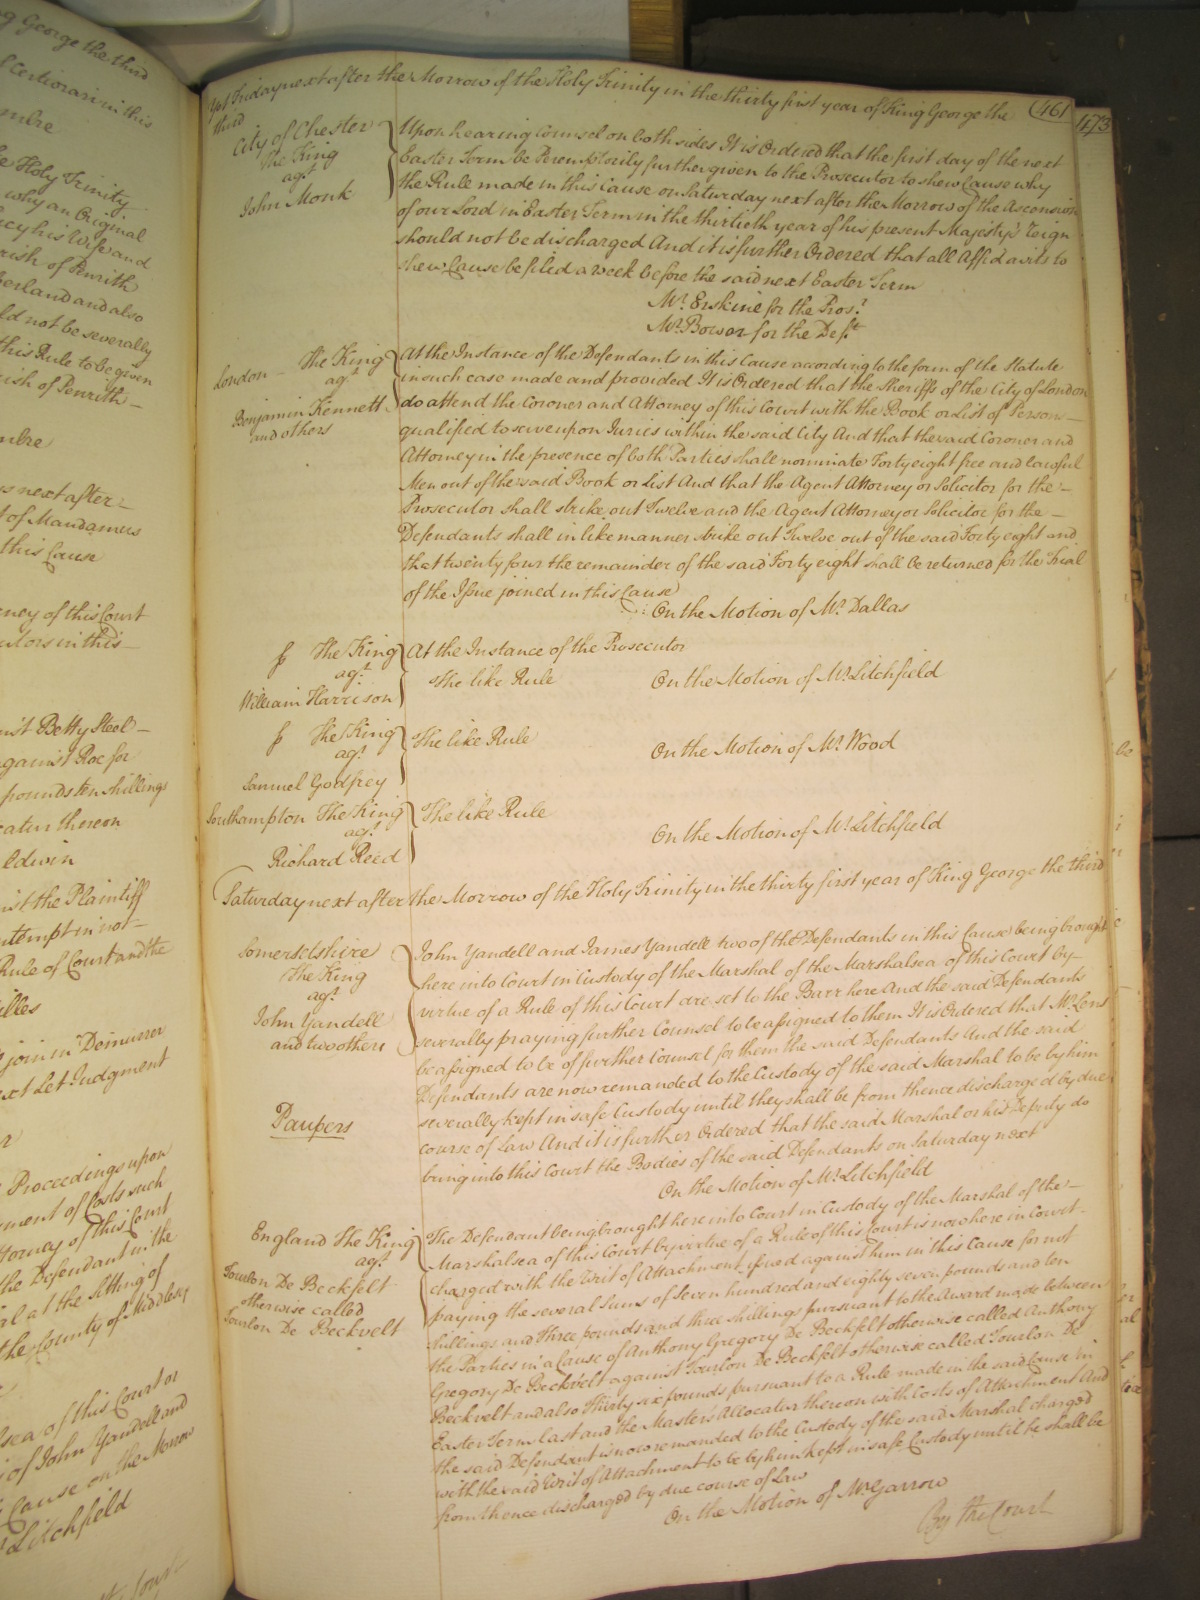 ng George the third
f Certiorari in this
mbre
he Holy Trinity
why an Original
ecy his Wife and
rish of Penrith
berland and also
ld not be severally
this Rule to be given
rish of Penrith
mbre
s next after
t of Mandamus
this Cause
rney of this Court
utors in this
nst Betty Steel
against Roe for
pounds ten shillings
catur thereon
ldwin
nst the Plaintiff
ntempt in not
Rule of Court and the
illes
join in Demurrer
ext Let Judgment
Proceedings upon
yment of Costs such
ttorney of this Court
he Defendant in the
ial at the Sitting of
the County of Middlesex
lsea of this Court or
of John Yandell and
Cause on the Morrow
Litchfield
Yet Friday next after the Morrow of the Holy Trinity in the thirty first year of King George the
third
461
473
City of Chester
The King
agt
John Monk
Upon hearing Counsel on both sides It is Ordered that the first day of the next
Easter Term be Peremptorily further given to the Prosecutor to shew Cause why
the Rule made in this Cause on Saturday next after the Morrow of the Ascension
of our Lord in Easter Term in the thirtieth year of his present Majesty's reign
should not be discharged And it is further Ordered that all Affidavits to
shew Cause be filed a week before the said next Easter Term
Mr. Erskine for the Pros.r
Mr. Bower for the Deft
London – The King
agt
Benjamin Kennett
and others
At the Instance of the Defendants in this Cause according to the form of the Statute
in such case made and provided It is Ordered that the Sheriffs of the City of London
do attend the Coroner and Attorney of this Court with the Book or List of Persons
qualified to serve upon Juries within the said City And that the said Coroner and
Attorney in the presence of both Parties shall nominate Forty eight free and lawful
Men out of the said Book or List And that the Agent Attorney or Solicitor for the
Prosecutor shall strike out Twelve and the Agent Attorney or Solicitor for the
Defendants shall in like manner strike out Twelve out of the said Forty eight and
that twenty four the remainder of the said Forty eight shall be returned for the Trial
of the Issue joined in this Cause
On the Motion of Mr. Dallas
The King
agt
William Harrison
At the Instance of the Prosecutor
The like Rule
On the Motion of Mr. Litchfield
The King
agt
Samuel Godfrey
The like Rule
On the Motion of Mr. Wood
Southampton The King
agt
Richard Reed
The like Rule
On the Motion of Mr. Litchfield
Saturday next after the Morrow of the Holy Trinity in the thirty first year of King George the third
Somersetshire
The King
agt
John Yandell
and two others
Paupers
John Yandell and James Yandell two of the Defendants in this Cause being brought
here into Court in Custody of the Marshal of the Marshalsea of this Court by
virtue of a Rule of this Court are set to the Barr here And the said Defendants
severally praying further Counsel to be assigned to them It is Ordered that Mr. Lens
be assigned to be of further Counsel for them the said Defendants And the said
Defendants are now remanded to the Custody of the said Marshal to be by him
severally kept in safe Custody until they shall be from thence discharged by due
course of Law And it is further Ordered that the said Marshal or his Deputy do
bring into this Court the Bodies of the said Defendants on Saturday next
On the Motion of Mr. Litchfield
England The King
agt
Tourlon De Beckfelt
otherwise called
Tourlon De Beckvelt
The Defendant being brought here into Court in Custody of the Marshal of the
Marshalsea of this Court by virtue of a Rule of this Court is now here in Court
charged with the Writ of Attachment issued against him in this Cause for not
paying the several Sums of Seven hundred and eighty seven pounds and ten
shillings and Three pounds and three shillings pursuant to the Award made between
the Parties in a Cause of Anthony Gregory De Beckfelt otherwise called Anthony
Gregory De Beckvelt against Tourlon De Beckfelt otherwise called Tourlon De
Beckvelt and also Thirty six pounds pursuant to a Rule made in the said Cause in
Easter Term last and the Master's Allocatur thereon with Costs of Attachment And
the said Defendant is now remanded to the Custody of the said Marshal charged
with the said Writ of Attachment to be by him kept in safe Custody until he shall be
from thence discharged by due course of Law
On the Motion of Mr. Garrow
By the Court